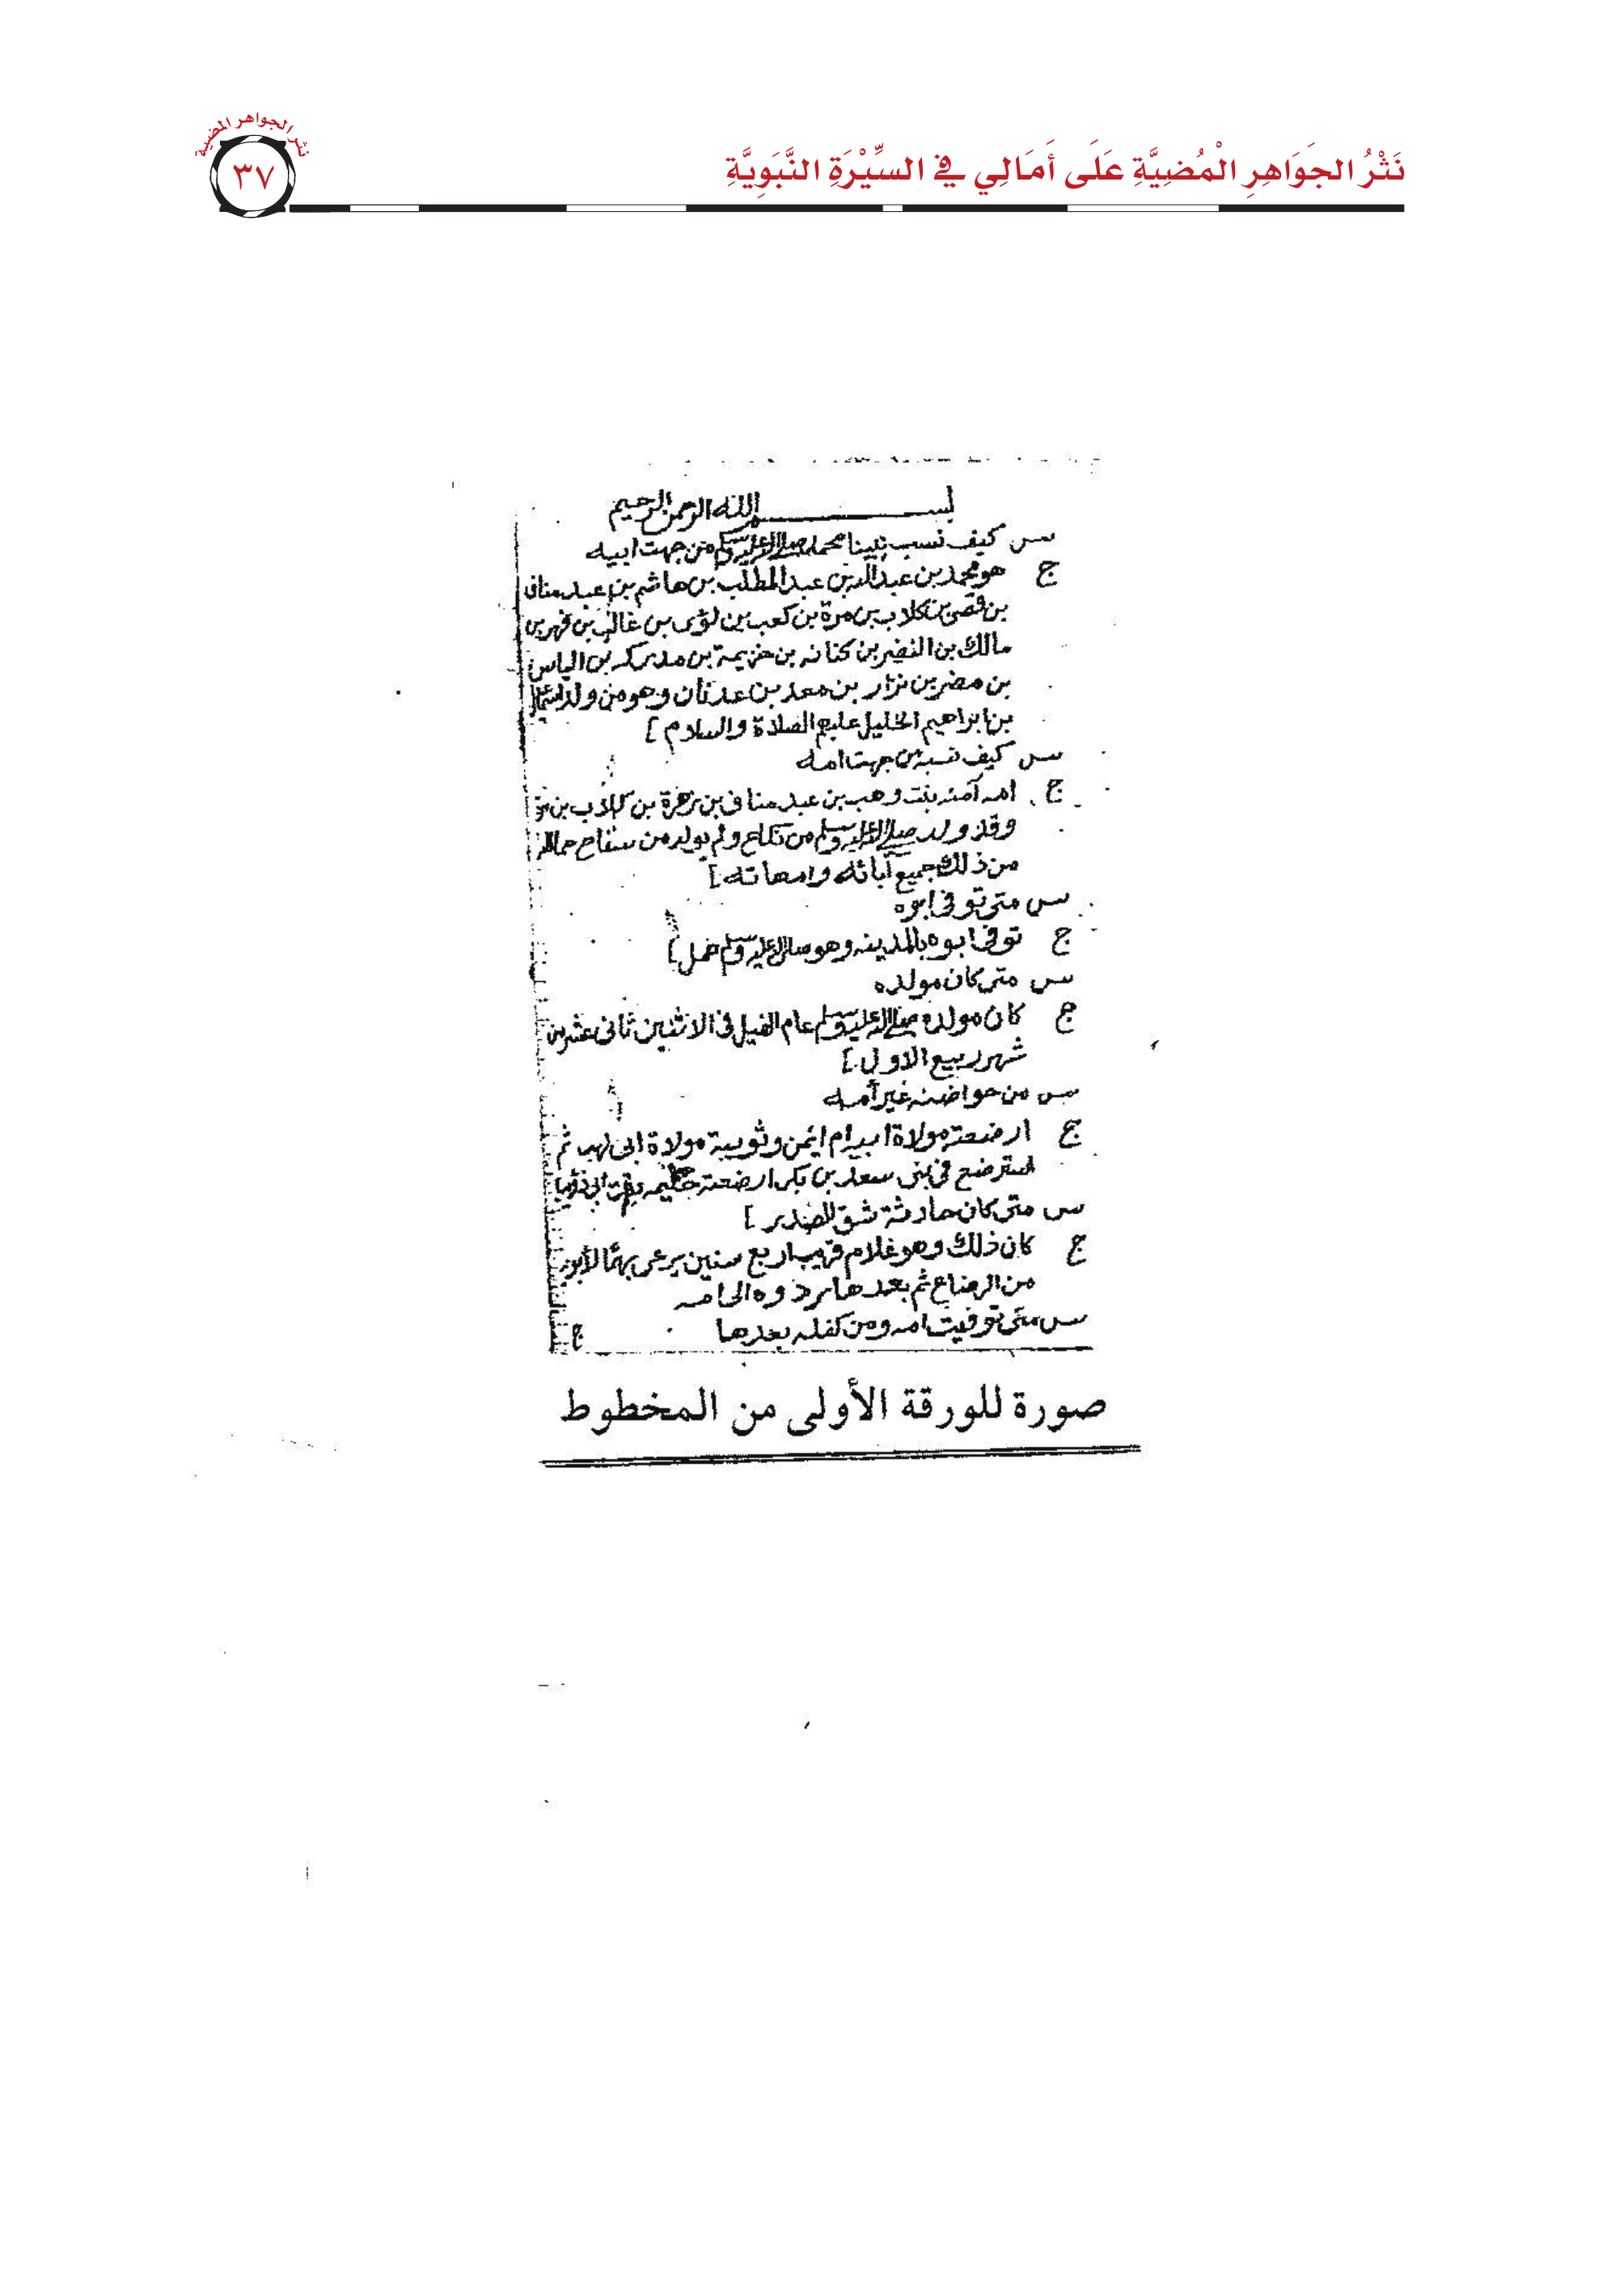 نَثْرُ الجَوَاهِرِ الْمُضِيَّةِ عَلَى أَمَالِي فِي السِّيْرَةِ النَّبَوِيَّةِ
نثر الجواهر المضية
٣٧
بسم الله الرحمن الرحيم
س كيف نسب نبينا محمد صلى الله عليه وسلم من جهت ابيه
ج هو محمد بن عبد الله بن عبد المطلب بن هاشم بن عبد مناف
بن قصي بن كلاب بن مرة بن كعب بن لؤى بن غالب بن فهر بن
مالك بن النضر بن كنانه بن خزيمة بن مدركه بن الياس
بن مضر بن نزار بن معد بن عدنان وهو من ولد
بن ابراهيم الخليل عليهم الصلاة والسلام ]
س كيف نسبه من جهت امه
ج امه آمنه بنت وهب بن عبد مناف بن زهرة بن كلاب بن
وقد ولد صلى الله عليه وسلم من نكاح ولم يولد من سفاح
من ذلك جميع آبائه وامهاته ]
س متى توفى ابوه
ج توفى ابوه بالمدينه وهو صلى الله عليه وسلم حمل ]
س متى كان مولده
ج كان مولده صلى الله عليه وسلم عام الفيل فى الاثنين ثانى عشر من
شهر ربيع الاول ]
س من حواضنه غير أمه
ج ارضعته مولاة ابيه ام ايمن وثويبة مولاة ابى لهب ثم
استرضع فى بنى سعد بن بكر ارضعته حليمه بنت ابى ذؤيب
س متى كان حادثة شق الصدر ]
ج كان ذلك وهو غلام قريب اربع سنين يرعى بهمًا لأبويه
من الرضاع ثم بعدها ردوه الى امه
س متى توفيت امه ومن كفله بعدها
ج
صورة للورقة الأولى من المخطوط